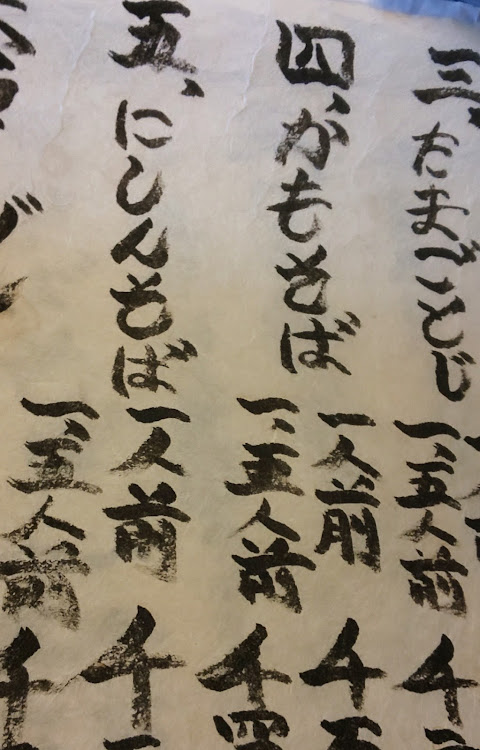 三、たまごとじ
一、五人前 千
四、かもそば
一人前 千
一、五人前 千四
五、にしんそば
一人前 千
一、五人前 千